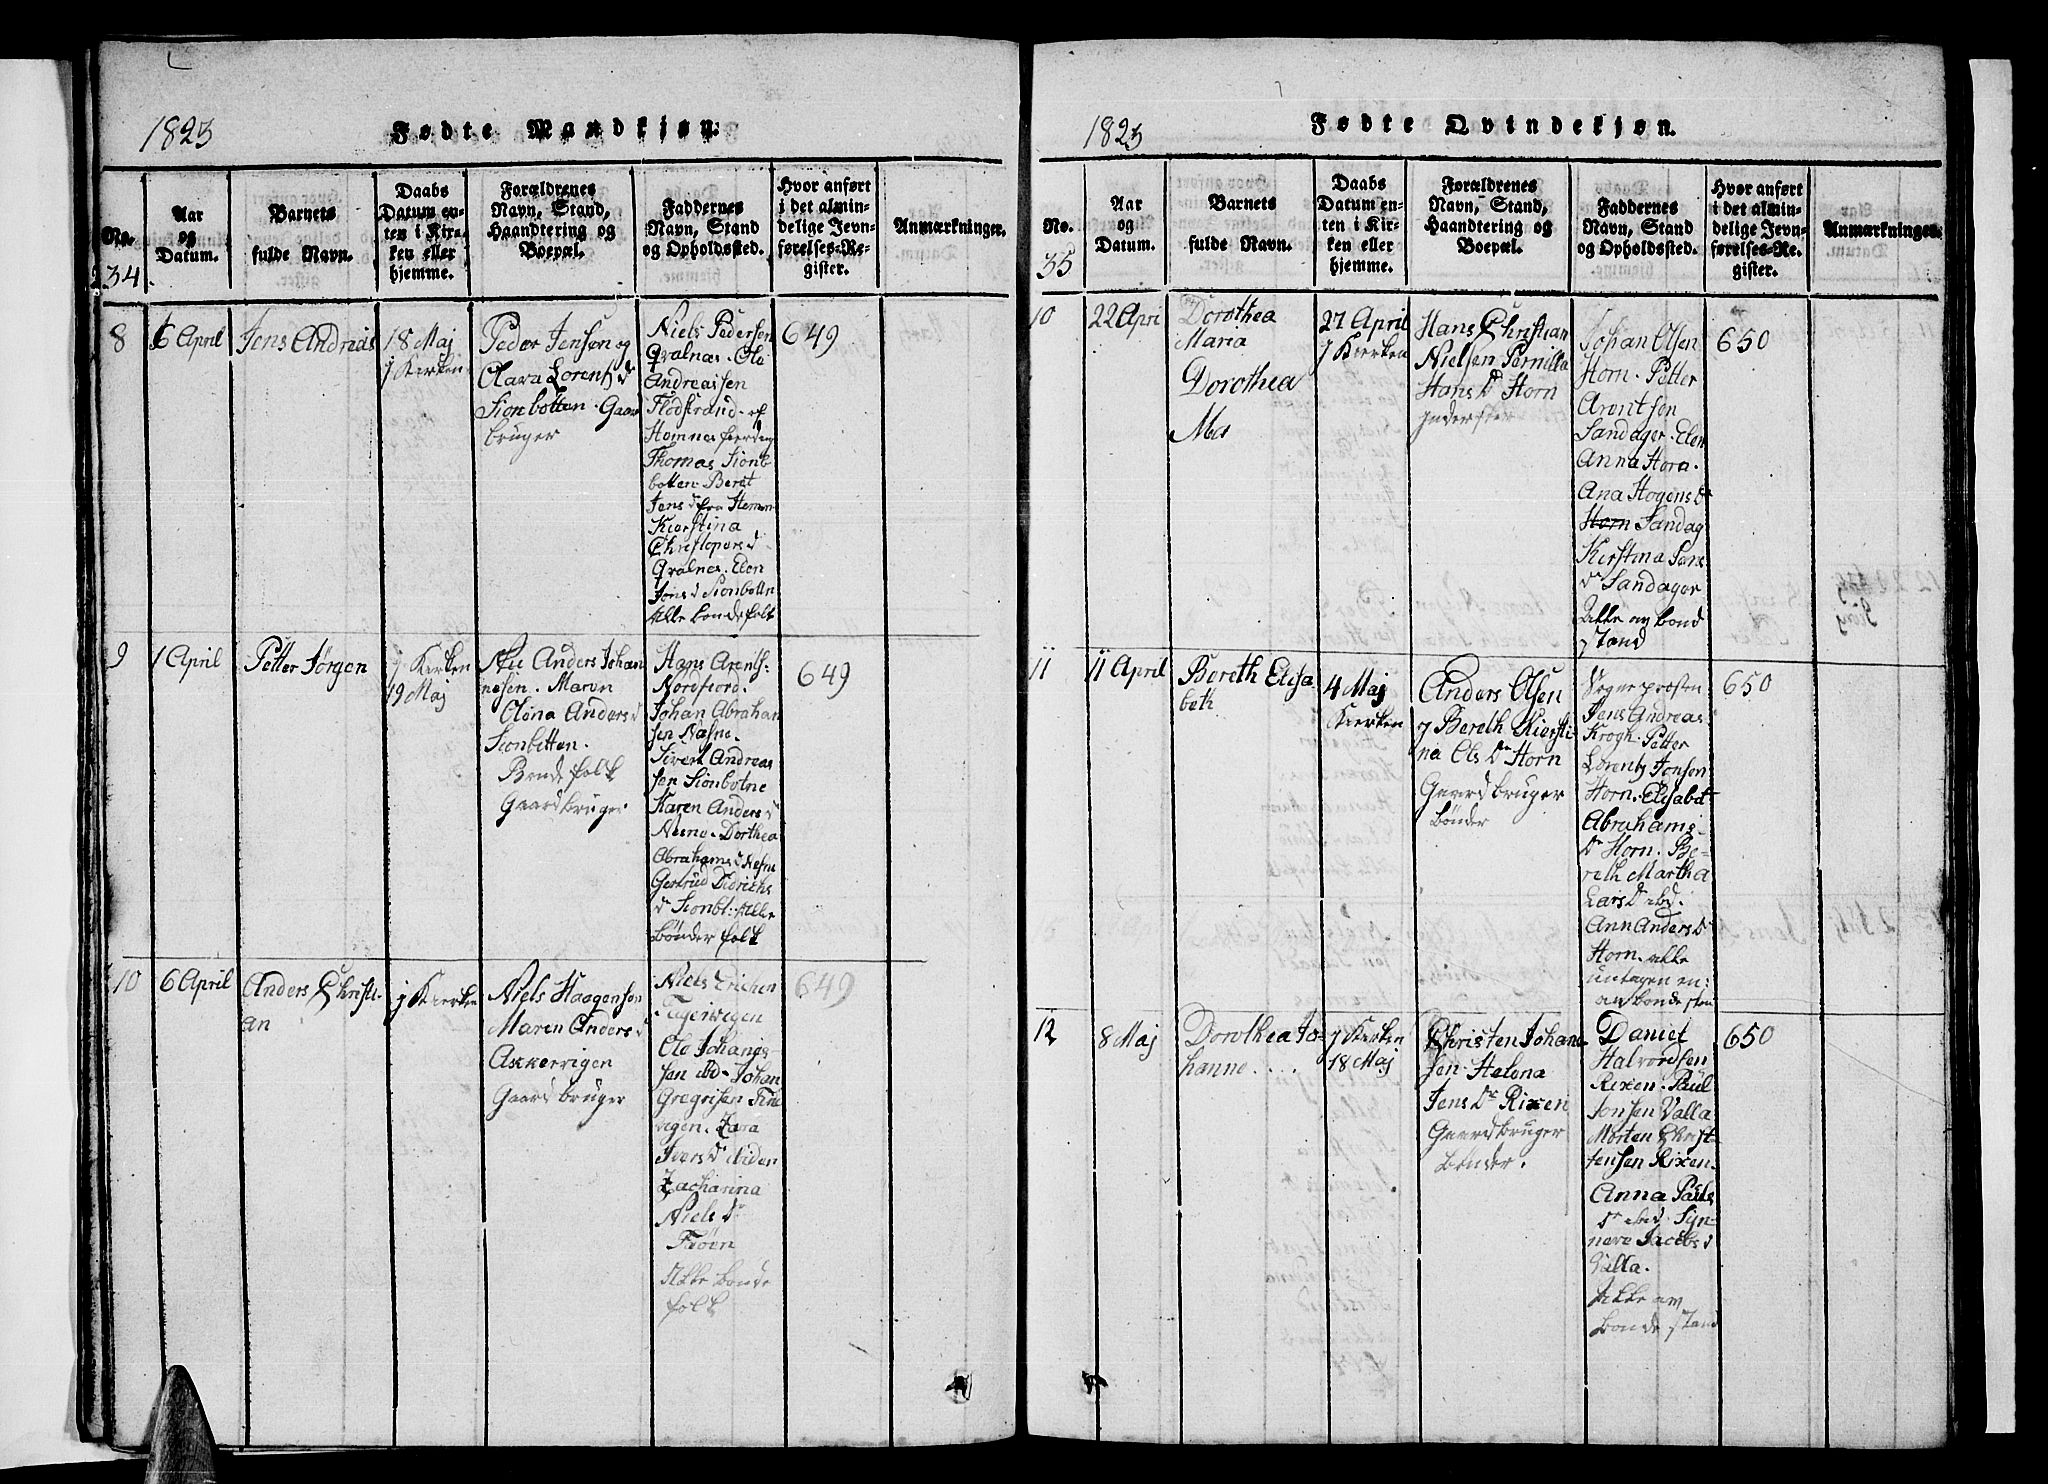 1823
Fødte Mandkjøn.
No.
34
Aar
og
Datum.
Barnets
fulde Navn.
Daabs
Datum en-
ten i Kir-
ken eller
hjemme.
Forældrenes
Navn, Stand,
Haandtering og
Boepæl.
Faddernes
Navn, Stand
og Opholdssted.
Hvor anført
i det almin-
delige Jevn-
førelses-Re-
gister.
Anmærkninger.
8
6 April
Jens Andreas
18 Maj
j Kirken
Peder Jensen og
Olava Lorentz d
Sionbotten. Gaar
bruger
Niels Pedersen
Qvalnæs. Ole
Andreassen
Flodstrand. af
Thomas Sionb
botten. Beret
Jens d fra Hemn
Kierstina
Christopers d
Qvalnes. Elen
Jens d Sionbottn
Alle bondefolk
649
9
1 April
Petter Jørgen
j Kirken
19 Maj
Anders Johan
nesen. Maren
Olena Anders d
Sionbotten.
Bondefolk
Gaardbruger
Hans Arents:
Nordfiord.
Johan Abraham
sen Næsne.
Sivert Andreas
sen Sionbotne
Karen Anders d
Nesne. Dorthea
Abrahams d Nesne
Gertrud Didrichs
d Sionbt: Alle
bønder folk
649
10
6 April
Anders Christi-
an
j Kierken
Niels Haagensen
Maren Anders d
Axkervigen
Gaardbruger
Niels Erichsen
Ole Johanis
sen ibd. Johan
Gregrisen Fine
vegen. Zara
Ivers d
Zacharina
Niels Dr
Alle bonde
folk
649
1823
Fødte Qvindekjøn.
No.
35
Aar
og
Datum.
Barnets
fulde Navn.
Daabs
Datum en-
ten i Kir-
ken eller
hjemme.
Forældrenes
Navn, Stand,
Haandtering og
Boepæl.
Faddernes
Navn, Stand
og Opholdssted.
Hvor anført
i det almin-
delige Jevn-
førelses-Re-
gister.
Anmærkninger.
10
22 Apri
Dorothea
Maria
Dorothea
Ma
27 April
j Kierken
Hans Christian
Nielsen Pernilla
Hans Dr Horn
Inderster
Johan Olsen
Horn. Petter
Arentsen
Sandager. Elen
Anna Horn.
Ana Hogens Dr
Horn Sandag
Kierstina Lars
Dr Sandager
Alle av bond
stand
650
11
11 April
Bereth Elisa
beth
4 Maj
Kierken
Anders Olsen
og Bereth Kiersti
na Ols Dr Horn
Gaardbruger
bønder
Vognepræsten
Jens Andreas
Krogh. Petter
Lorentz Jonsen
Horn. Elisabet
Abrahams
Dr Horn. Be-
reth Martha
Lars D ibd.
Ann Anders Dr
Horn. alle
untagen en:
av bondestan
650
12
8 Maj
Dorothea Jo-
hanne....
j Kirken
18 Maj
Christen Johane
sen. Helena
Jens Dr Rixen
Gaardbruger
bønder.
Daniel
Halvordsen
Rixen. Paul
Jonsen Valla
Morten Christ
tensen Rixen.
Anna Påuls
Dr ibd. Syn-
neve Jacobs d
Valla.
Alle av
bonde stand
650